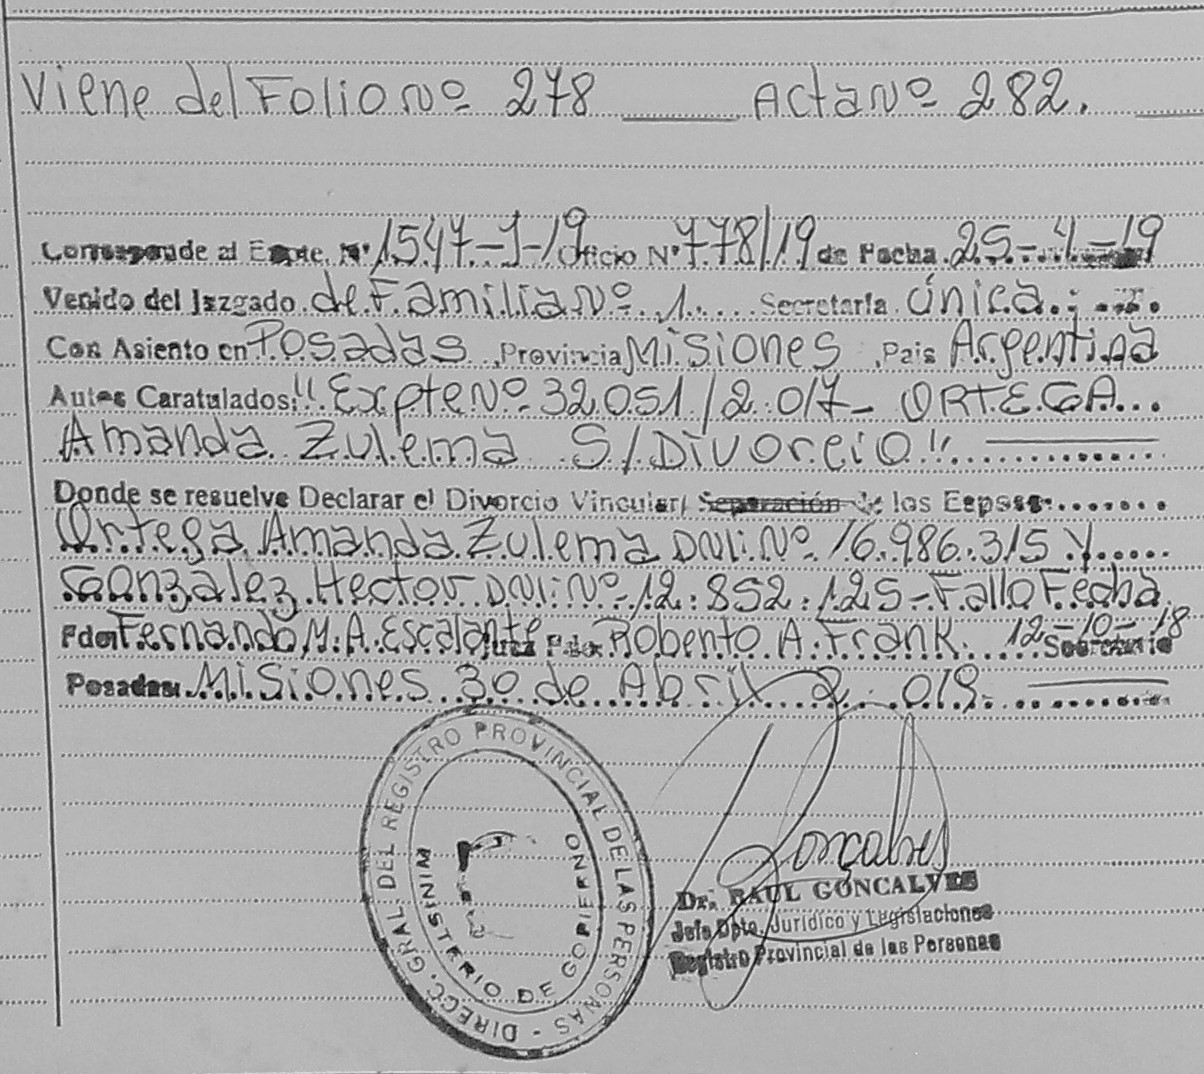 Viene del Folio Nº 278 ____ Acta Nº 282.
Corresponde al Expte. Nº 1547-J-19 Oficio Nº 778/19 de Fecha 25-4-19
Venido del Juzgado de Familia Nº 1 Secretaría Única.
Con Asiento en Posadas, Provincia Misiones, Pais Argentina
Autos Caratulados: "Expte Nº 32.051/2.017- ORTEGA
Amanda Zulema S/Divorcio".
Donde se resuelve Declarar el Divorcio Vincular/ Separación de los Espsos:
Ortega Amanda Zulema DNI. Nº 16.986.315 Y
Gonzalez Hector DNI: Nº 12.852.125- Fallo Fecha
Fdo: Fernando M. A. Escalante Juez Fdo: Roberto A. Frank. 12-10-18 Secretario
Posadas: Misiones 30 de Abril 2.019.
DIRECC. GRAL. DEL REGISTRO PROVINCIAL DE LAS PERSONAS -
MINISTERIO DE GOBIERNO
Goncalves
Dr. RAUL GONCALVES
Jefe Dpto. Jurídico y Legislaciones
Registro Provincial de las Personas